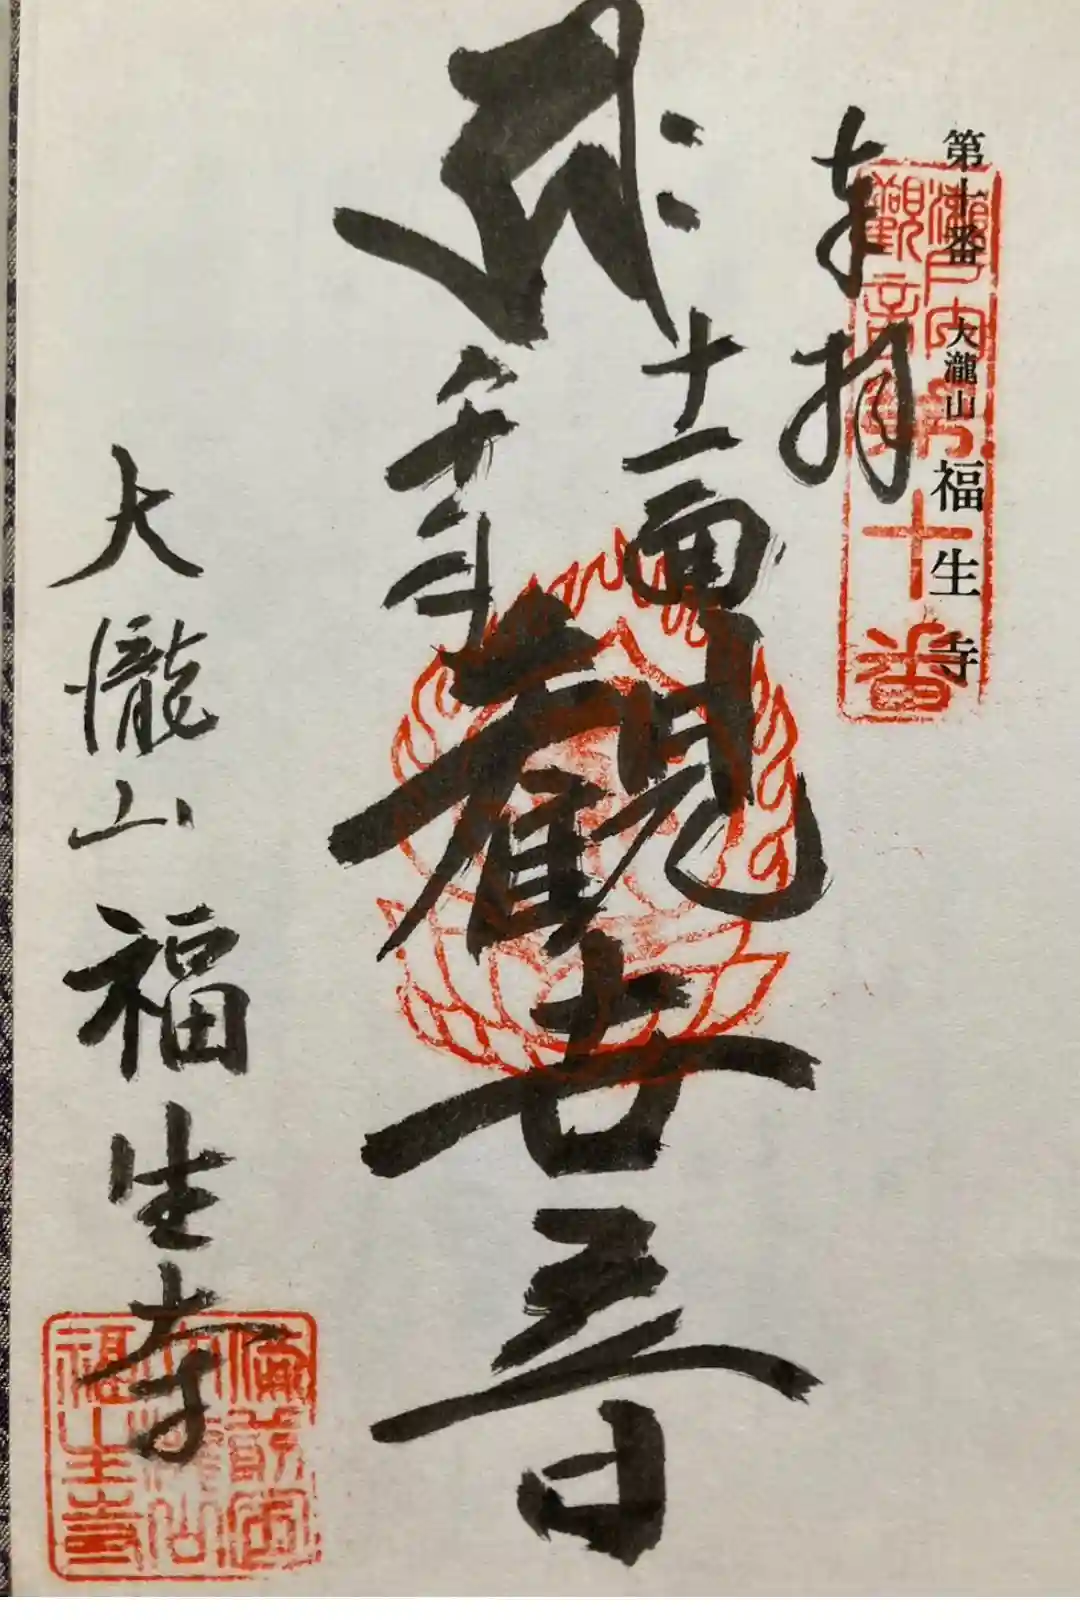 第十番 大瀧山 福生寺
瀬戸内
観音第十番
奉拝
十一面
千手
観世音
大瀧山福生寺
備前国
大瀧山
福生寺